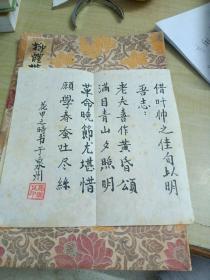 借叶帅之佳句以明
吾志：
老夫喜作黄昏颂
满目青山夕照明
革命晚节尤堪惜
愿学春蚕吐尽丝
花甲之时书于泉州